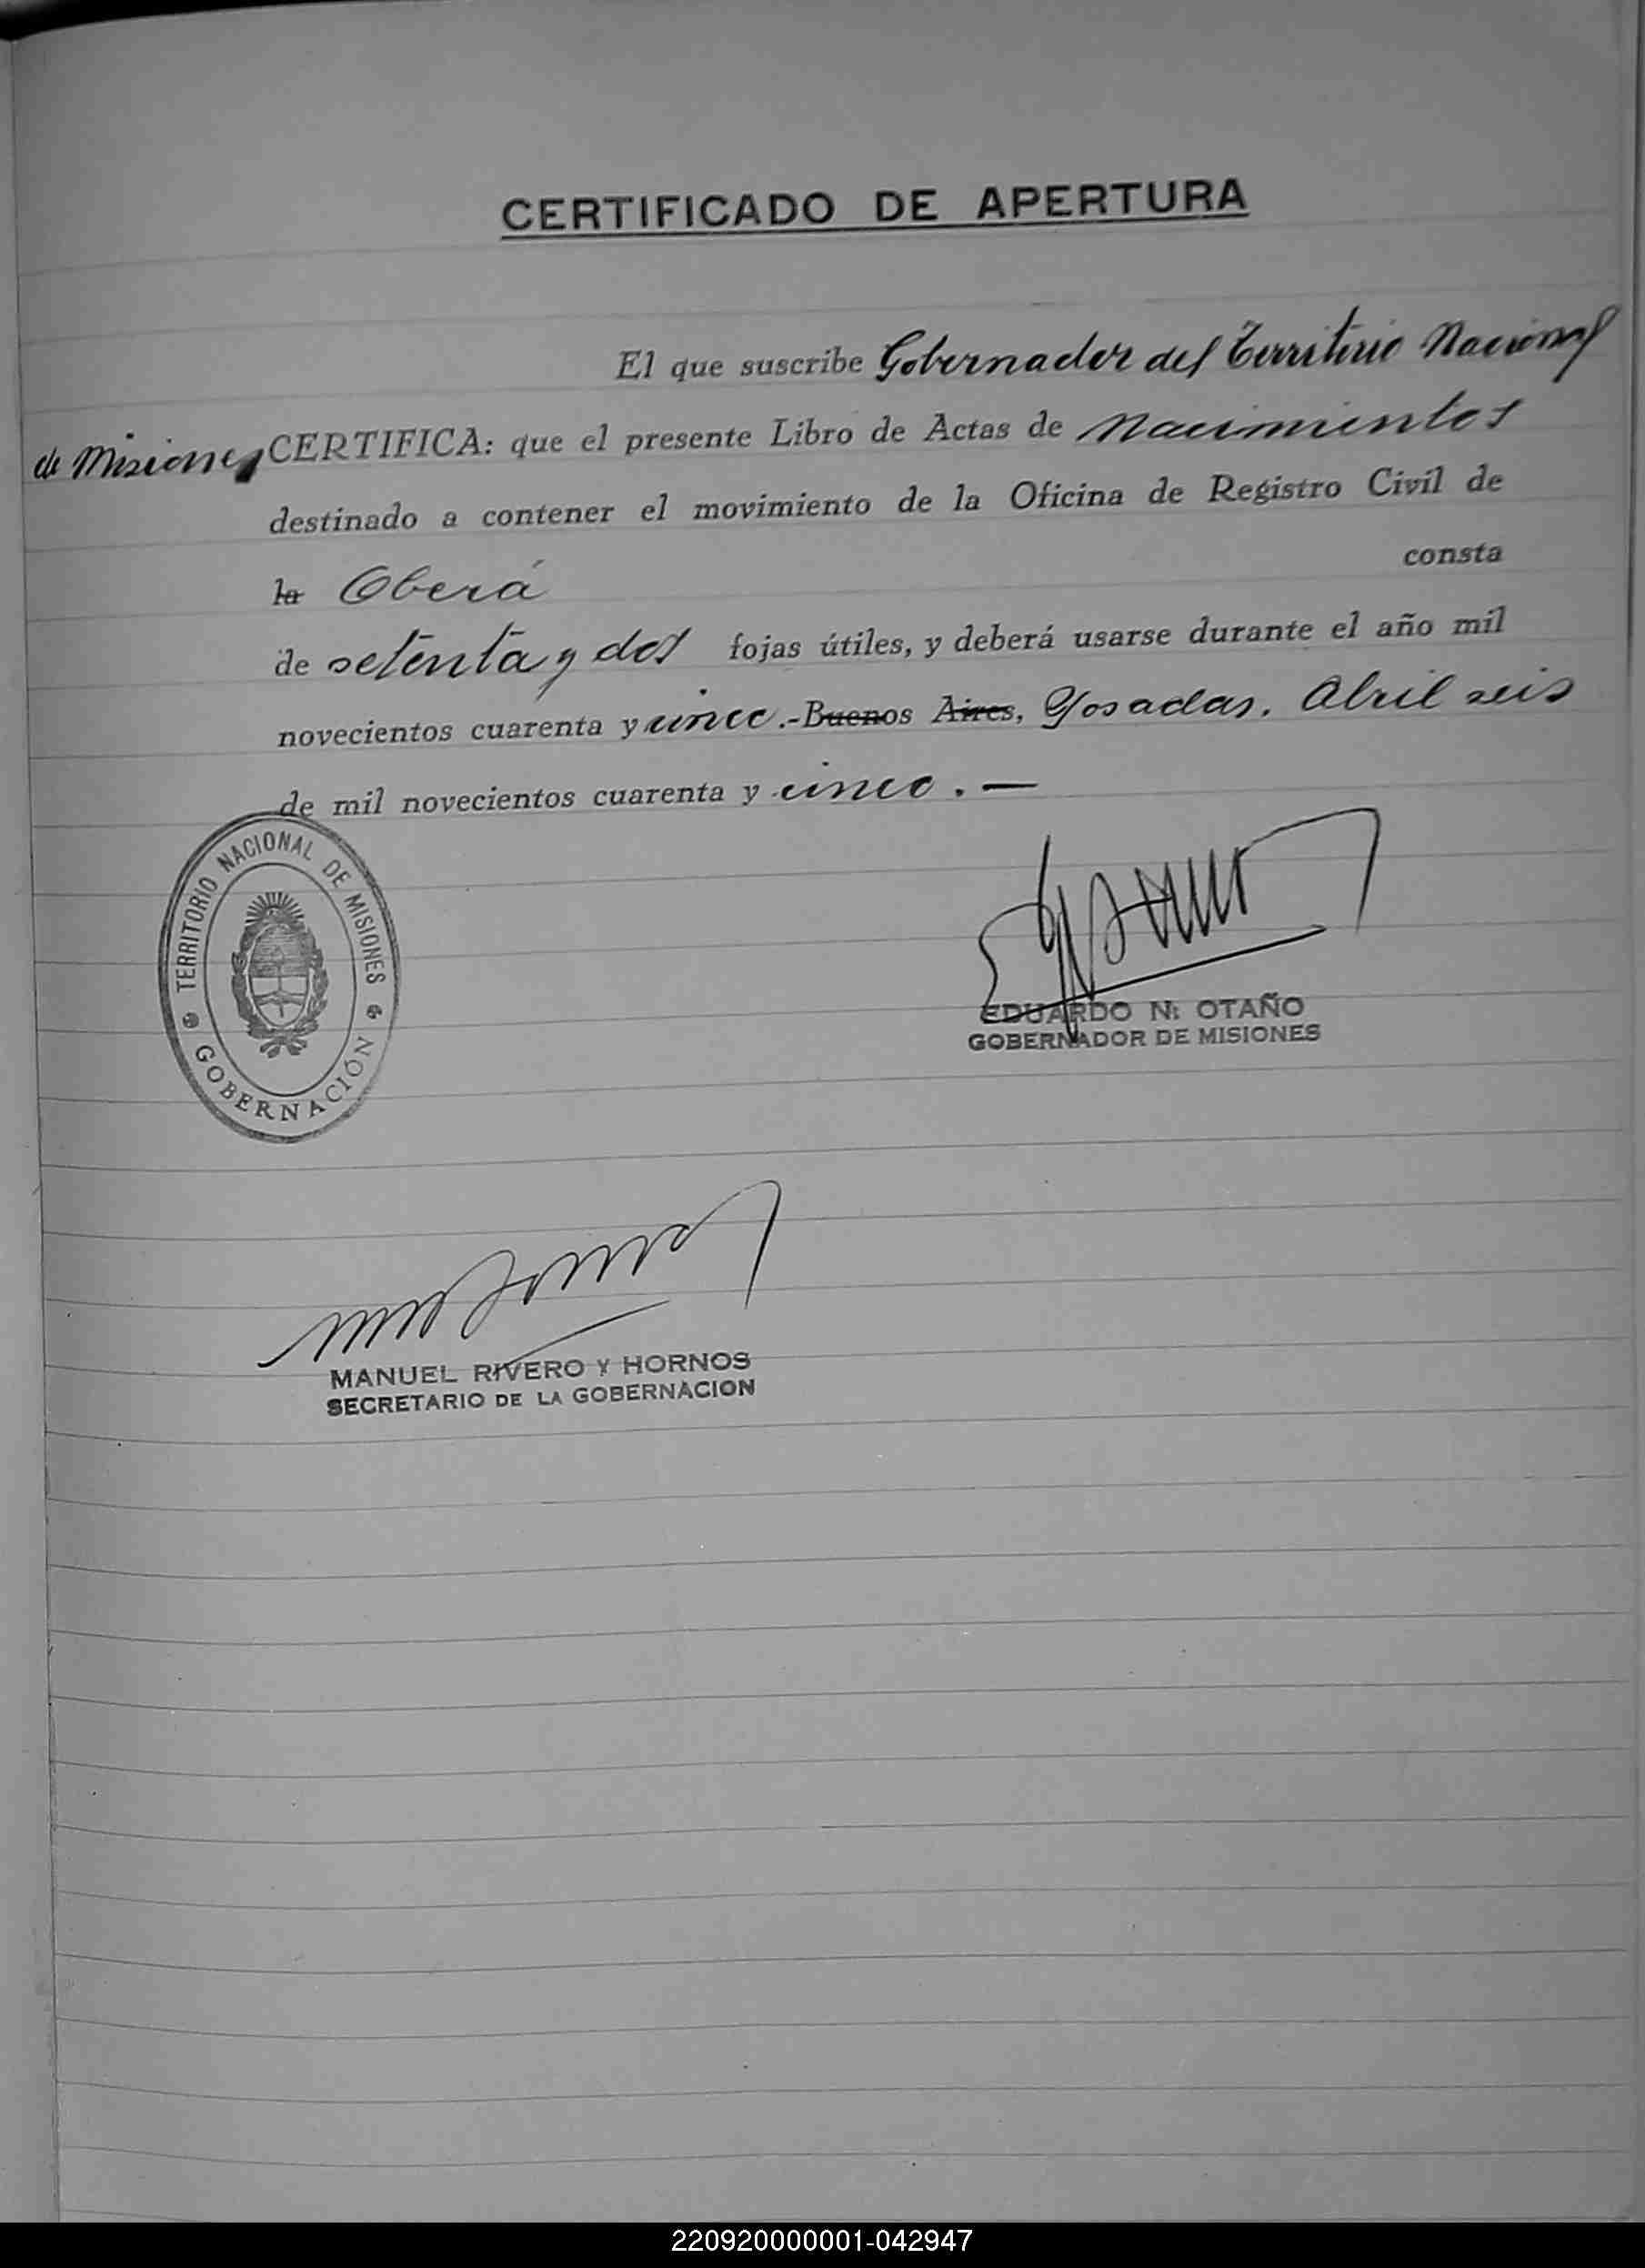 CERTIFICADO DE APERTURA
El que suscribe Gobernador del Territorio Nacional
de Misiones CERTIFICA: que el presente Libro de Actas de Nacimientos
destinado a contener el movimiento de la Oficina de Registro Civil de
la Oberá consta
de setenta y dos fojas útiles, y deberá usarse durante el año mil
novecientos cuarenta y cinco.-Buenos Aires, Posadas, Abril seis
de mil novecientos cuarenta y cinco.—
TERRITORIO NACIONAL DE MISIONES
GOBERNACIÓN
EDUARDO N. OTAÑO
GOBERNADOR DE MISIONES
MANUEL RIVERO Y HORNOS
SECRETARIO DE LA GOBERNACION
220920000001-042947